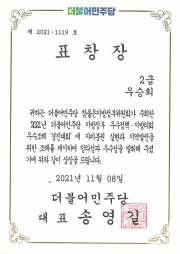 더불어민주당
제 2021-1119 호
표 창 장
2급
우승희
귀하는 더불어민주당 참좋은지방정부위원회가 주최한
"2021년 더불어민주당 지방정부 우수정책·지방의회
우수조례 경진대회"에 자치분권 실현과 지역발전을
위한 조례를 제시하여 창의성과 우수성을 발휘해 주셨
기에 위와 같이 상장을 드립니다.
2021년 11월 08일
더불어민주당
대표 송영길